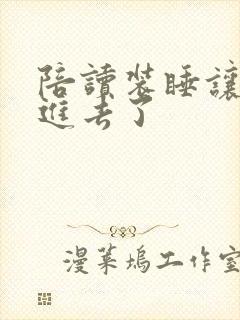 陪讀裝睡讓
進去了
漫葉塢工作室